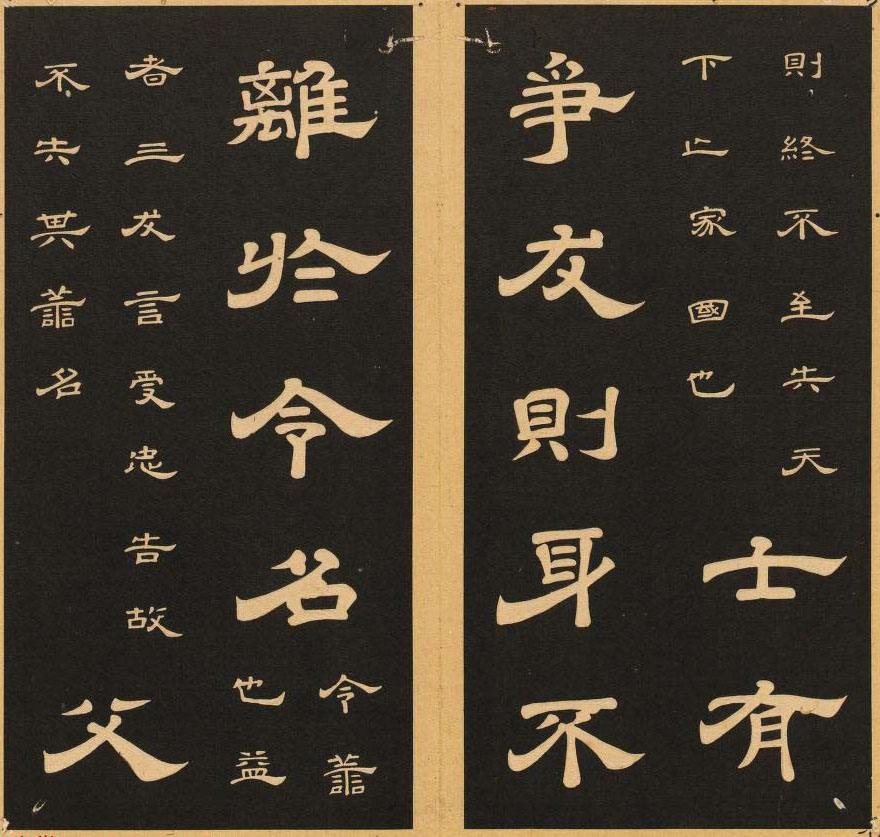 則終不至失天
下亡家國也
士有
爭友則身不
離於令名
令善
也益
者三友言受忠告故
不失其善名
父